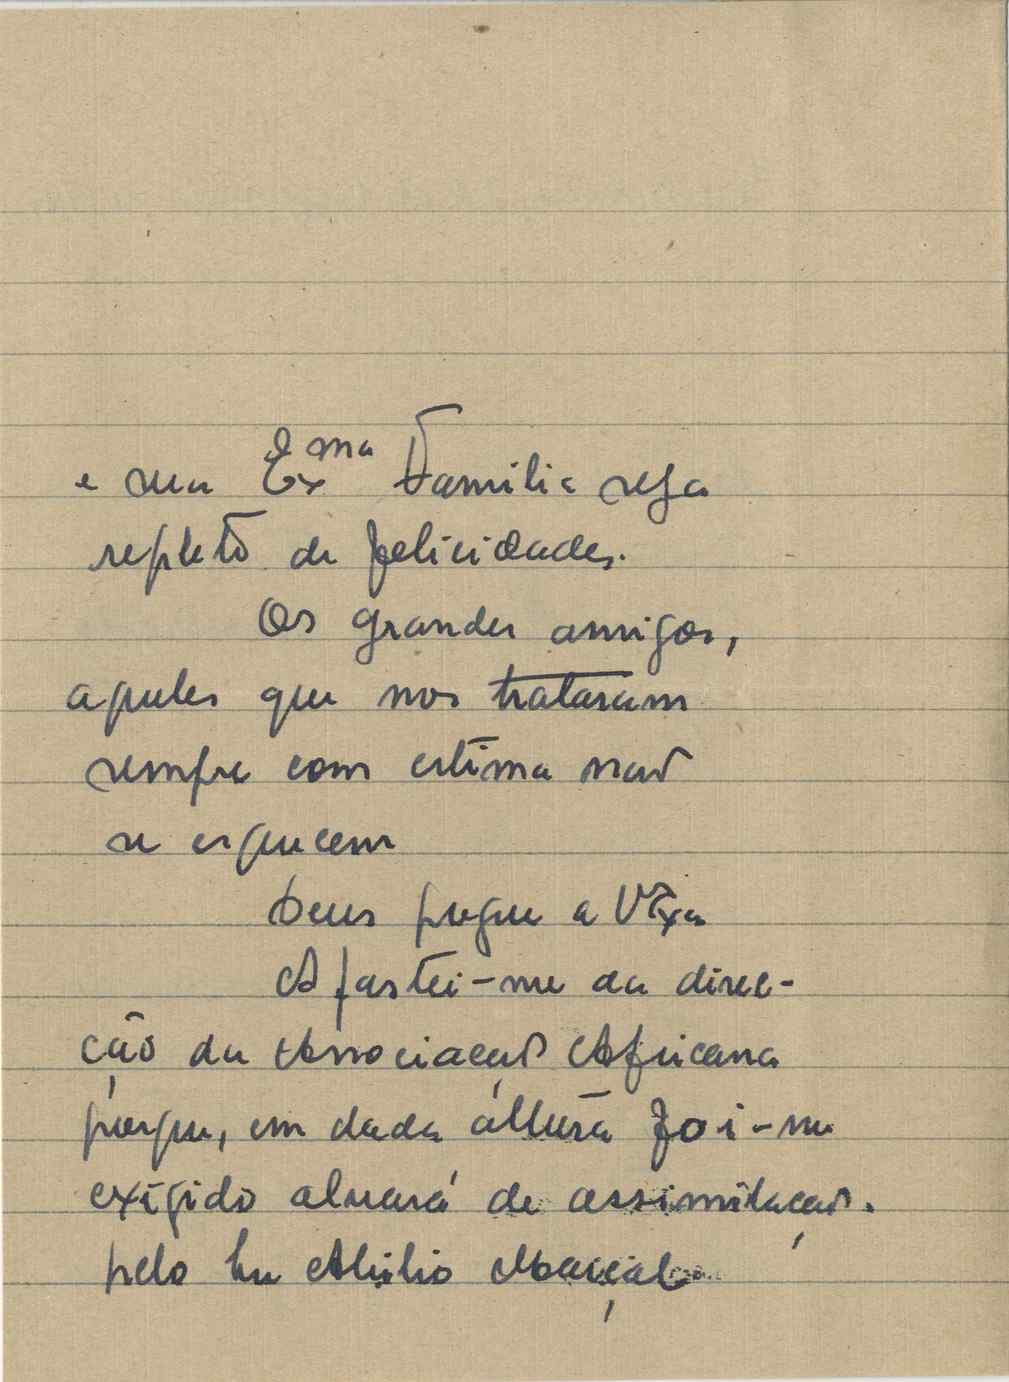 e sua Exma Familia seja
repleto de felicidades.
Os grandes amigos,
aqueles que nos trataram
sempre com estima não
se esquecem
Deus pague a V Exa
Afastei-me da direc-
ção da Associação Africana
porque, em dada altura foi-me
exigido alvará de assimilação.
pelo Abilio